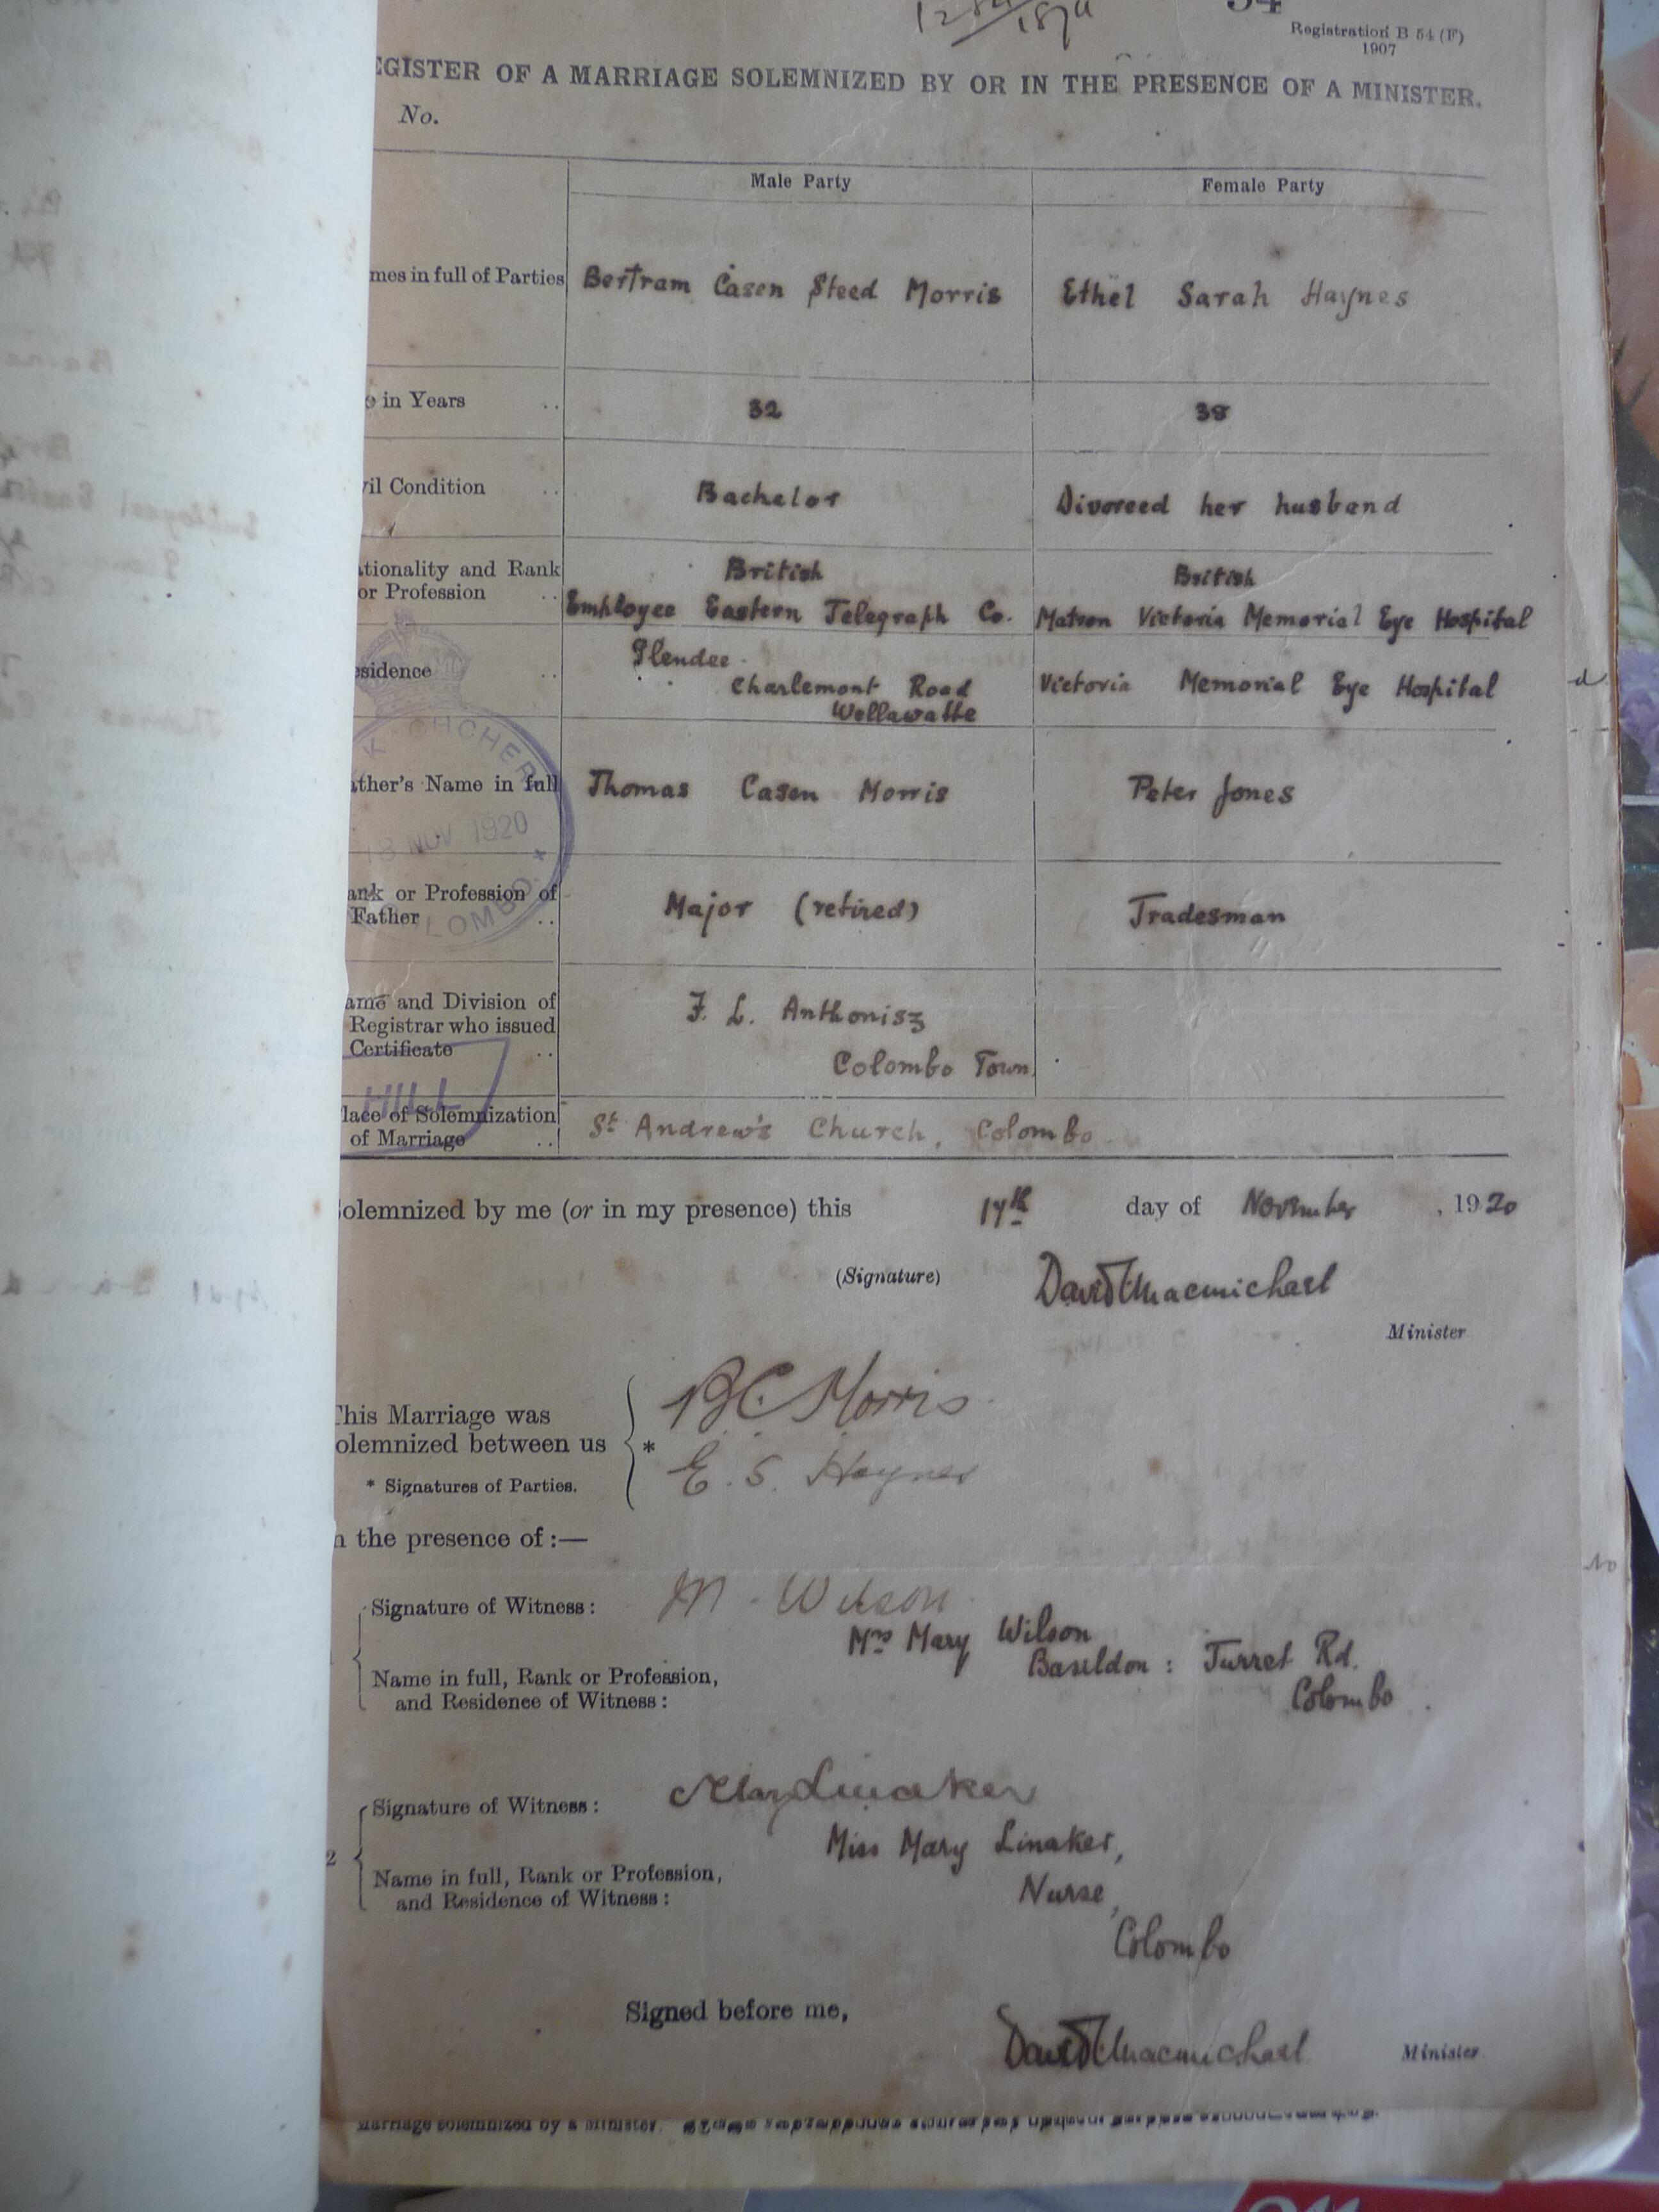 Registration B 54 (F)
1907
EGISTER OF A MARRIAGE SOLEMNIZED BY OR IN THE PRESENCE OF A MINISTER.
No.
Male Party Female Party
mes in full of Parties Bertram Casen Steed Morris Ethel Sarah Haynes
in Years .. 32 38
vil Condition .. Bachelor Divorced her husband
tionality and Rank British British
or Profession .. Employee Eastern Telegraph Co. Matron Victoria Memorial Eye Hospital
Glendee
esidence .. Charlemont Road Victoria Memorial Eye Hospital
Wellawatte
ather's Name in full Thomas Casen Morris Peter Jones
18 NOV 1920
ank or Profession of Major (retired) Tradesman
Father ..
LOMBO
ame and Division of F. L. Anthonisz
Registrar who issued
Certificate .. Colombo Town
HILL
lace of Solemnization St Andrew's Church, Colombo
of Marriage ..
Solemnized by me (or in my presence) this 17th day of November, 1920
(Signature) David Macmichael
Minister
This Marriage was B C Morris
olemnized between us * E. S. Haynes
* Signatures of Parties.
n the presence of :—
Signature of Witness : M. Wilson
Mrs Mary Wilson
Name in full, Rank or Profession, Baseldon : Turret Rd.
and Residence of Witness : Colombo
Signature of Witness : Mary Linaker
Miss Mary Linaker,
2 Name in full, Rank or Profession, Nurse,
and Residence of Witness :
Colombo
Signed before me,
David Macmichael Minister
Marriage solemnized by a Minister.